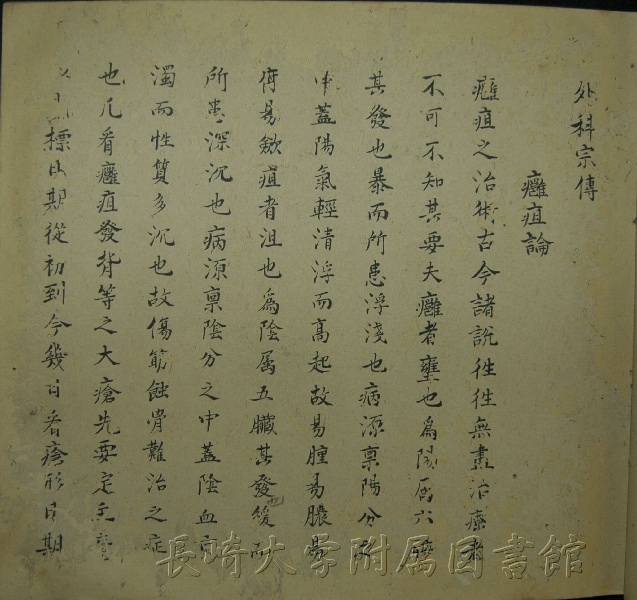 外科宗傳
癰疽論
癰疽之治術古今諸說徃徃無盡治療者
不可不知其要夫癰者壅也爲陽属六腑
其發也暴而所患浮淺也病源禀陽分
中蓋陽氣輕清浮而髙起故易腫易膿易
腐易歛疽者沮也爲陰属五臓其發也緩而
所患深沉也病源禀陰分之中蓋陰血
濁而性質多沉也故傷筋蝕骨難治之症
也凡看癰疽發背等之大瘡先要定
標日期從初到今幾日看瘡形日期
長崎大学附属図書館